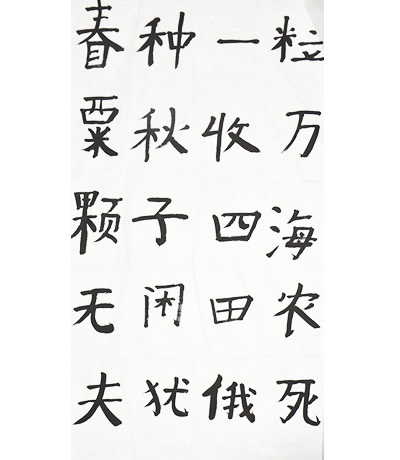 春种一粒
粟秋收万
颗子四海
无闲田农
夫犹俄死